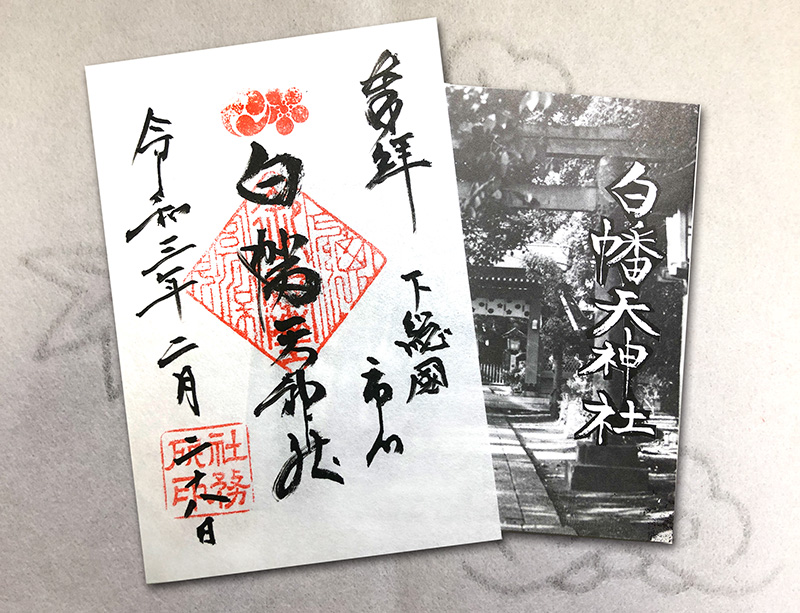 奉拝
下総國
市川
白幡天神社
令和三年二月二十八日
社務
之印
白幡天神社